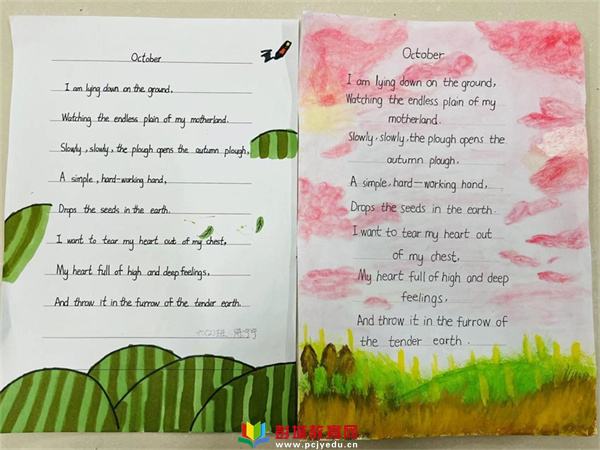 October
I am lying down on the ground,
Watching the endless plain of my motherland.
Slowly, slowly, the plough opens the autumn plough,
A simple, hard-working hand,
Drops the seeds in the earth.
I want to tear my heart out of my chest,
My heart full of high and deep feelings,
And throw it in the furrow of the tender earth.
October
I am lying down on the ground,
Watching the endless plain of my
motherland.
Slowly, slowly, the plough opens the
autumn plough.
A simple, hard—working hand,
Drops the seeds in the earth.
I want to tear my heart out
of my chest,
My heart full of high and deep
feelings,
And throw it in the furrow of
the tender earth.
www.pcjyedu.cn